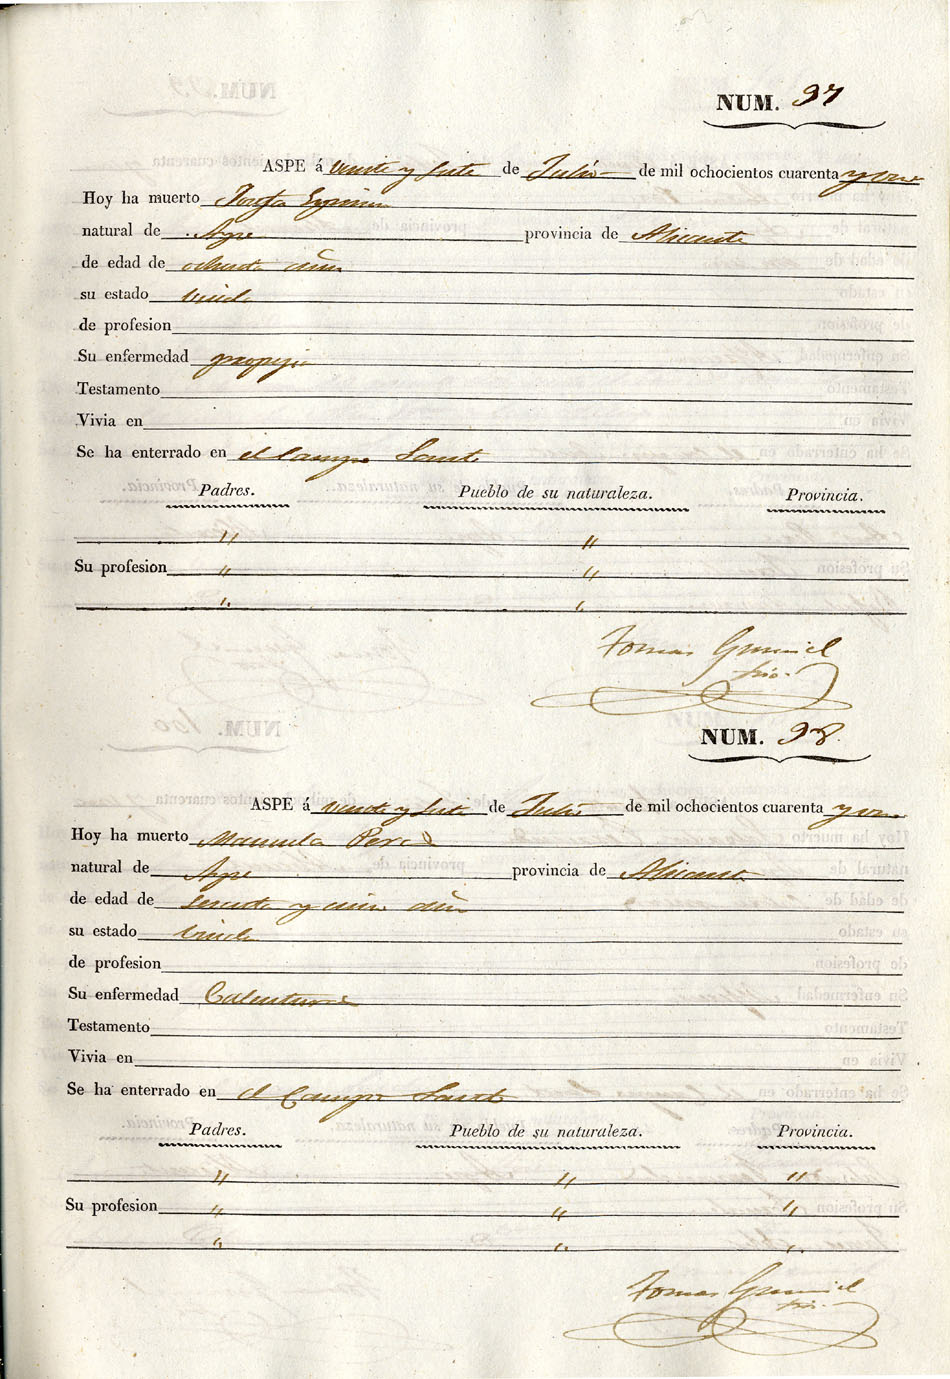 NUM. 97
ASPE á veinte y siete de Julio de mil ochocientos cuarenta y uno
Hoy ha muerto Josefa
natural de Aspe provincia de Alicante
de edad de ochenta años
su estado viuda
de profesion
Su enfermedad
Testamento
Vivia en
Se ha enterrado en el Campo Santo
Padres. Pueblo de su naturaleza. Provincia.
" "
Su profesion " "
" "
Tomas
NUM. 98.
ASPE á veinte y siete de Julio de mil ochocientos cuarenta y uno
Hoy ha muerto Manuela Perez
natural de Aspe provincia de Alicante
de edad de sesenta y cinco años
su estado viuda
de profesion
Su enfermedad Calenturas
Testamento
Vivia en
Se ha enterrado en el Campo Santo
Padres. Pueblo de su naturaleza. Provincia.
" " "
Su profesion " " "
" " "
Tomas